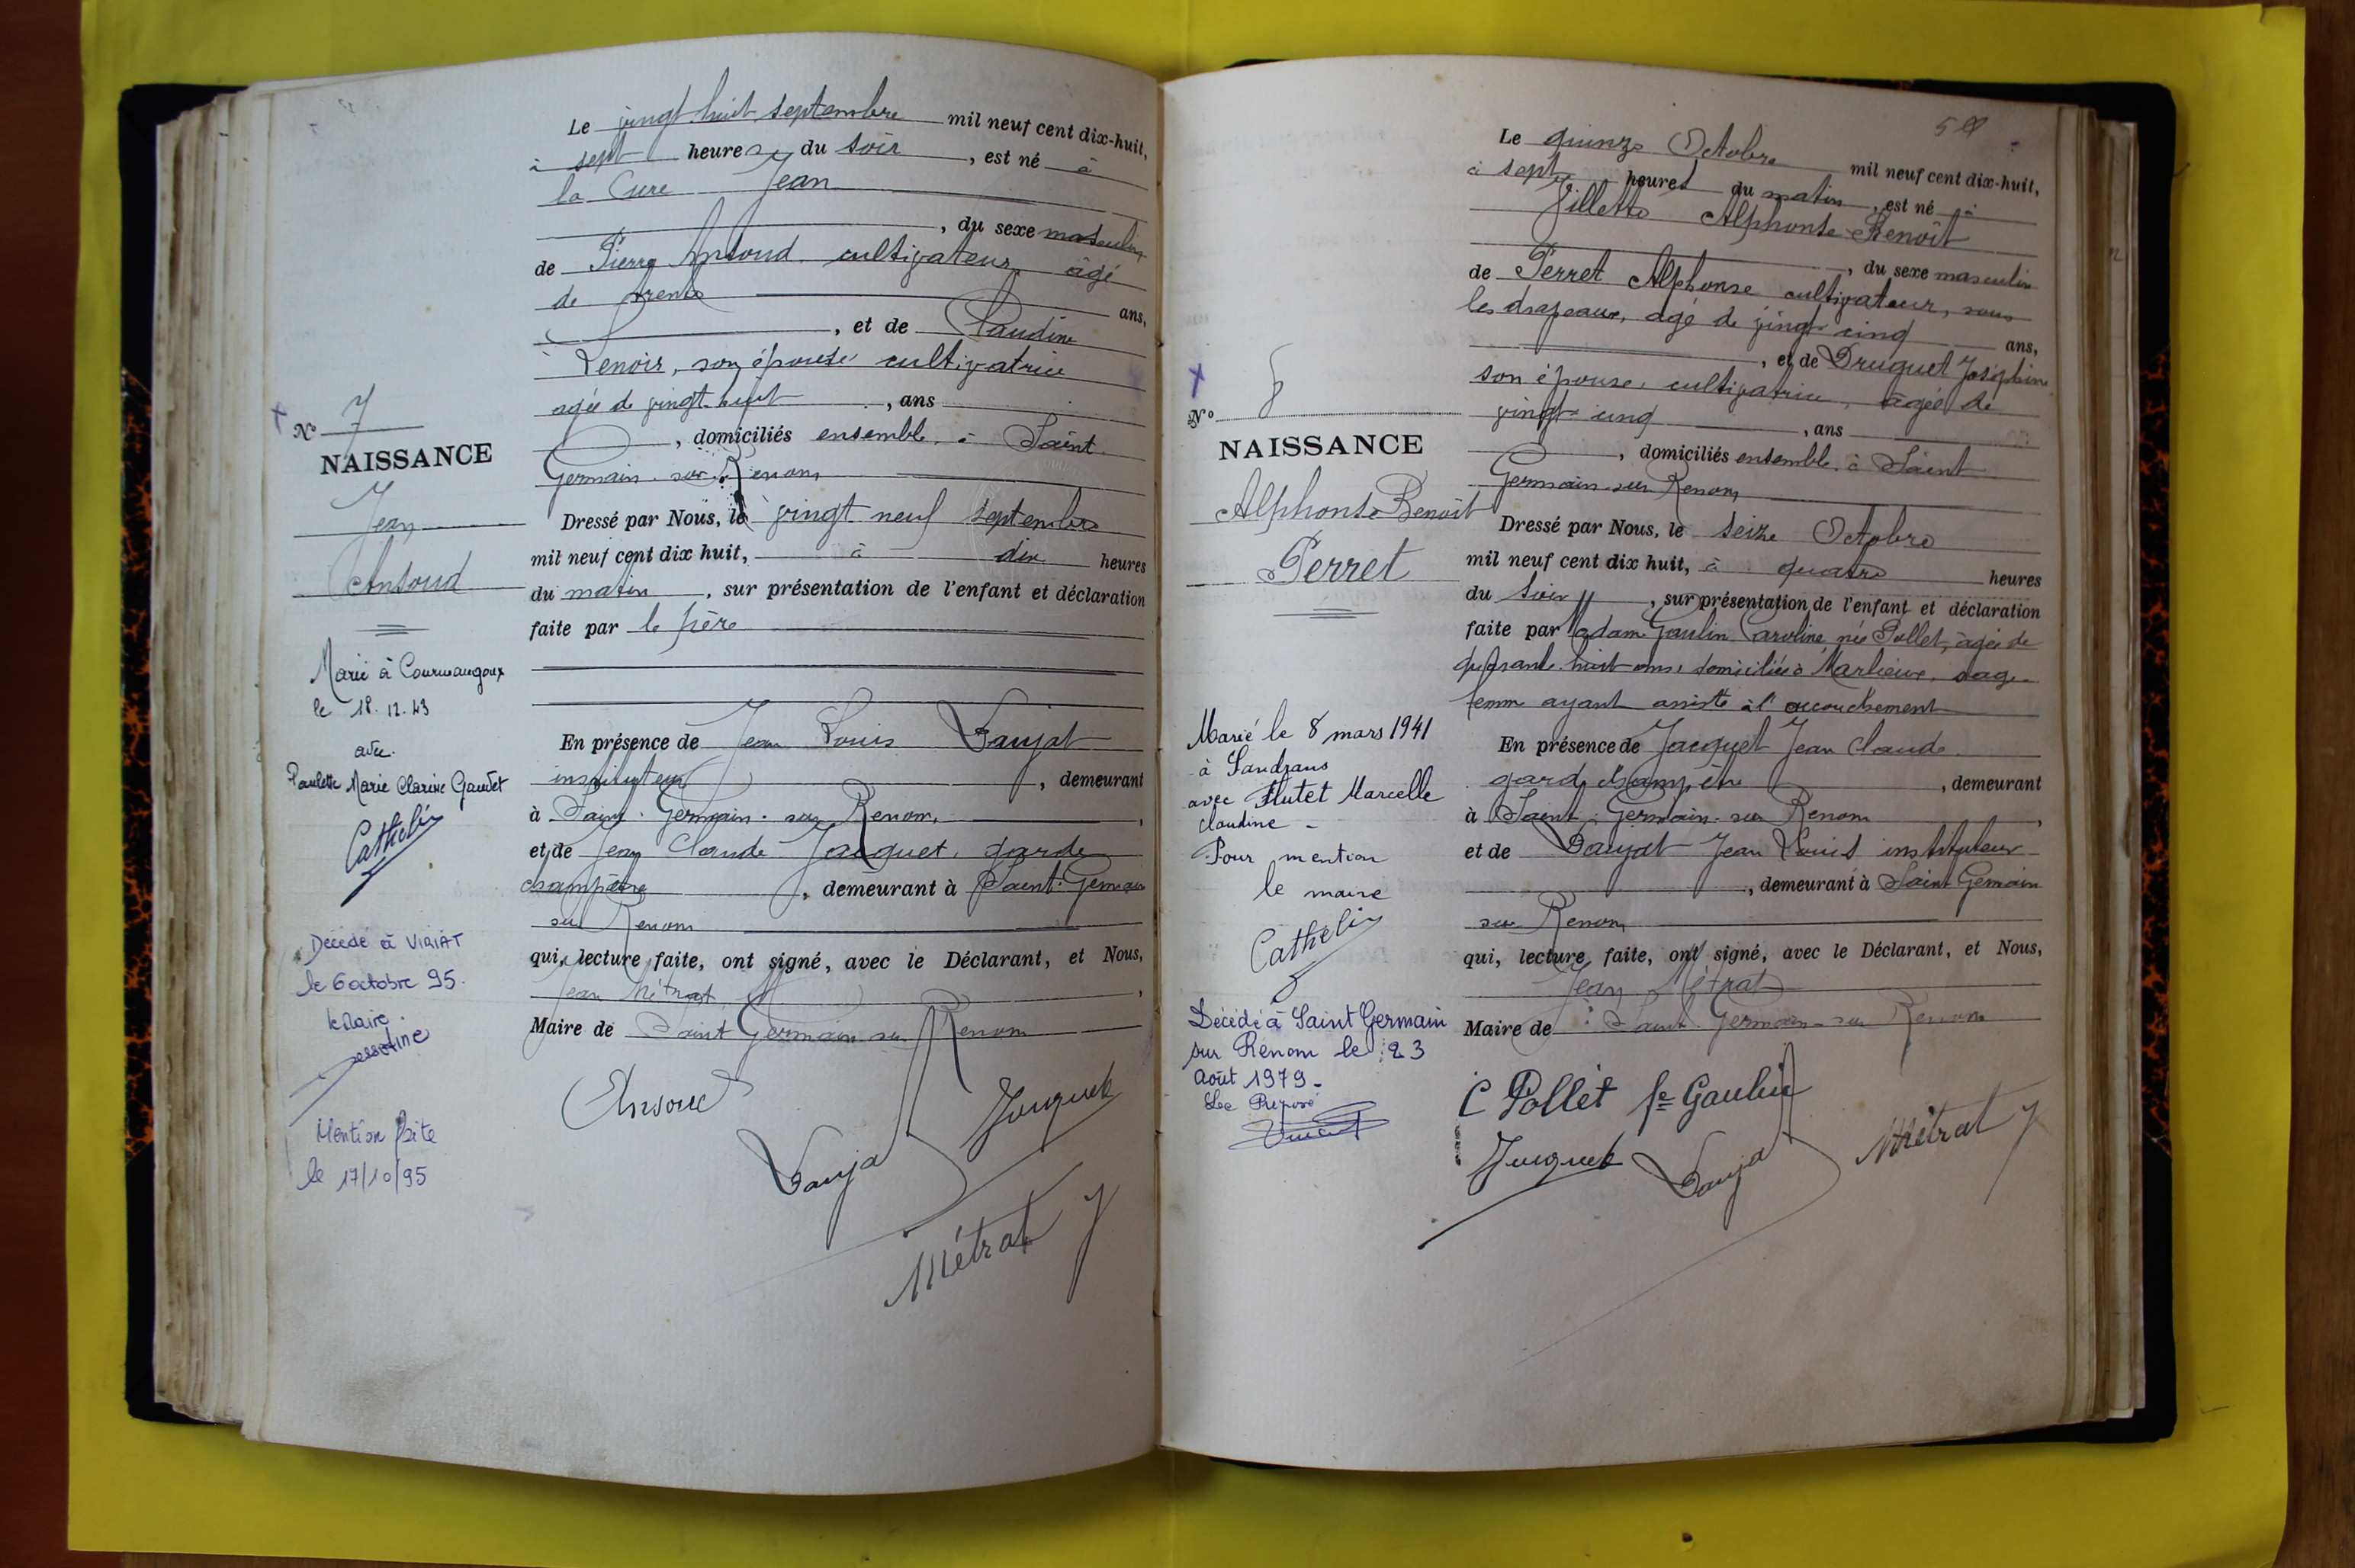 Le vingt huit septembre mil neuf cent dix-huit,
à sept heures du soir, est né à
la Cure Jean
, du sexe masculin
de Pierre Ansoud cultivateur âgé
de trente ans,
, et de Claudine
Renoir, son épouse cultivatrice
agée de vingt-huit, ans
, domiciliés ensemble à Saint
Germain-sur-Renom
Dressé par Nous, le vingt neuf septembre
mil neuf cent dix huit, à dix heures
du matin, sur présentation de l'enfant et déclaration
faite par le père
En présence de Jean Louis
instituteur, demeurant
à Saint-Germain-sur Renom,
et de Jean Claude Jacquet, garde
champêtre, demeurant à Saint-Germain
sur Renom
qui, lecture faite, ont signé, avec le Déclarant, et Nous,
Jean Métrat
Maire de Saint Germain sur Renom
Ansoud
Métrat J
N° 7
NAISSANCE
Jean
Ansoud
Marié à Courmangoux
le 18.12.43
avec
Paulette Marie Clarisse Gaudet
Cathelin
Décédé à VIRIAT
le 6 octobre 95.
le Maire.
Mention faite
le 17/10/95
Le quinze Octobre mil neuf cent dix-huit,
à sept heures du matin, est né à
Villette Alphonse Benoît
, du sexe masculin
de Perret Alphonse cultivateur, sous
les drapeaux, agé de vingt cinq ans,
, et de Druguet Joséphine
son épouse, cultivatrice, âgée de
vingt-cinq, ans
, domiciliés ensemble à Saint
Germain-sur Renom
Dressé par Nous, le seize Octobre
mil neuf cent dix huit, à quatre heures
du soir, sur présentation de l'enfant et déclaration
faite par Madame Gaulin Caroline, née Pollet, âgée de
quarante huit ans, domiciliée à Marlieux, sage-
femme ayant assisté à l'accouchement
En présence de Jacquet Jean Claude
garde champêtre, demeurant
à Saint-Germain-sur Renom,
et de Jean Louis instituteur
, demeurant à Saint Germain
sur Renom
qui, lecture faite, ont signé, avec le Déclarant, et Nous,
Jean Métrat
Maire de Saint-Germain-sur Renom
C Pollet fe Gaulin
Métrat J
N° 8
NAISSANCE
Alphonse Benoît
Perret
Marié le 8 mars 1941
à Sandrans
avec Flutet Marcelle
Claudine -
Pour mention
le maire
Cathelin
Décédé à Saint Germain
sur Renom le 23
Août 1979 -
Le Préposé